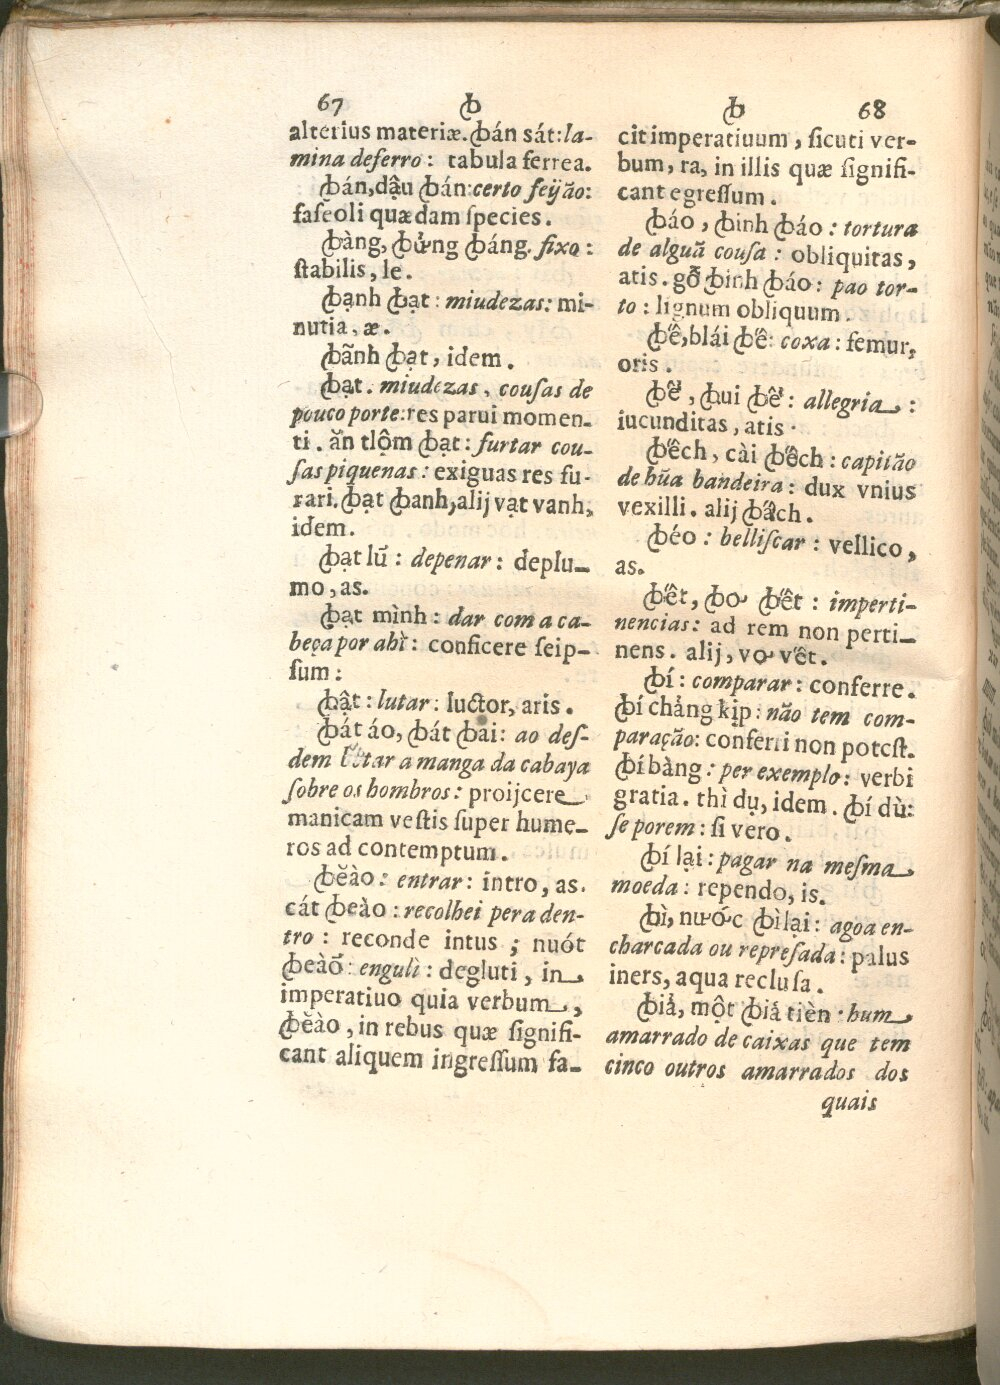 67 ꞗ
alterius materiæ. ꞗán sát: la-
mina de ferro: tabula ferrea.
ꞗán, dậu ꞗán: certo feijão:
faſeoli quædam ſpecies.
ꞗàng, ꞗững ꞗáng. fixo:
ſtabilis, le.
ꞗạnh ꞗạt: miudezas: mi-
nutia, æ.
ꞗãnh ꞗạt, idem.
ꞗạt. miudezas, couſas de
pouco porte: res parui momen-
ti. ăn tlộm ꞗạt: furtar cou-
ſas piquenas: exiguas res fu-
rari. ꞗạt ꞗanh, alij vạt vanh,
idem.
ꞗạt lũ: depenar: deplu-
mo, as.
ꞗạt mình: dar com a ca-
beça por ahì: conficere ſeip-
ſum:
ꞗật: lutar: luctor, aris.
ꞗát áo, ꞗát ꞗai: ao deſ-
dem botar a manga da cabaya
ſobre os hombros: proijcere
manicam veſtis ſuper hume-
ros ad contemptum.
ꞗĕào: entrar: intro, as.
cát ꞗeào: recolhei pera den-
tro: reconde intus; nuót
ꞗeàõ: engulì: degluti, in
imperatiuo quia verbum,
ꞗĕào, in rebus quæ ſignifi-
cant aliquem ingreſſum fa-
ꞗ 68
cit imperatiuum, ſicuti ver-
bum, ra, in illis quæ ſignifi-
cant egreſſum.
ꞗáo, ꞗinh ꞗáo: tortura
de algũa couſa: obliquitas,
atis. gỗ ꞗinh ꞗáo: pao tor-
to: lignum obliquum.
ꞗế, blái ꞗế: coxa: femur,
oris.
ꞗể, ꞗui ꞗể: allegria:
iucunditas, atis.
ꞗếch, cài ꞗếch: capitão
de hũa bandeira: dux vnius
vexilli. alij ꞗấch.
ꞗéo: belliſcar: vellico,
as.
ꞗết, ꞗơ ꞗết: imperti-
nencias: ad rem non perti-
nens. alij, vơ vết.
ꞗí: comparar: conferre.
ꞗí chảng kịp: não tem com-
paração: conferri non poteſt.
ꞗí bàng: per exemplo: verbi
gratia. thì dụ, idem. ꞗí dù:
ſe porem: ſi vero.
ꞗí lại: pagar na meſma
moeda: rependo, is.
ꞗì, nước ꞗì lại: agoa en-
charcada ou repreſada: palus
iners, aqua recluſa.
ꞗiả, một ꞗiả tièn: hum
amarrado de caixas que tem
cinco outros amarrados dos
quais